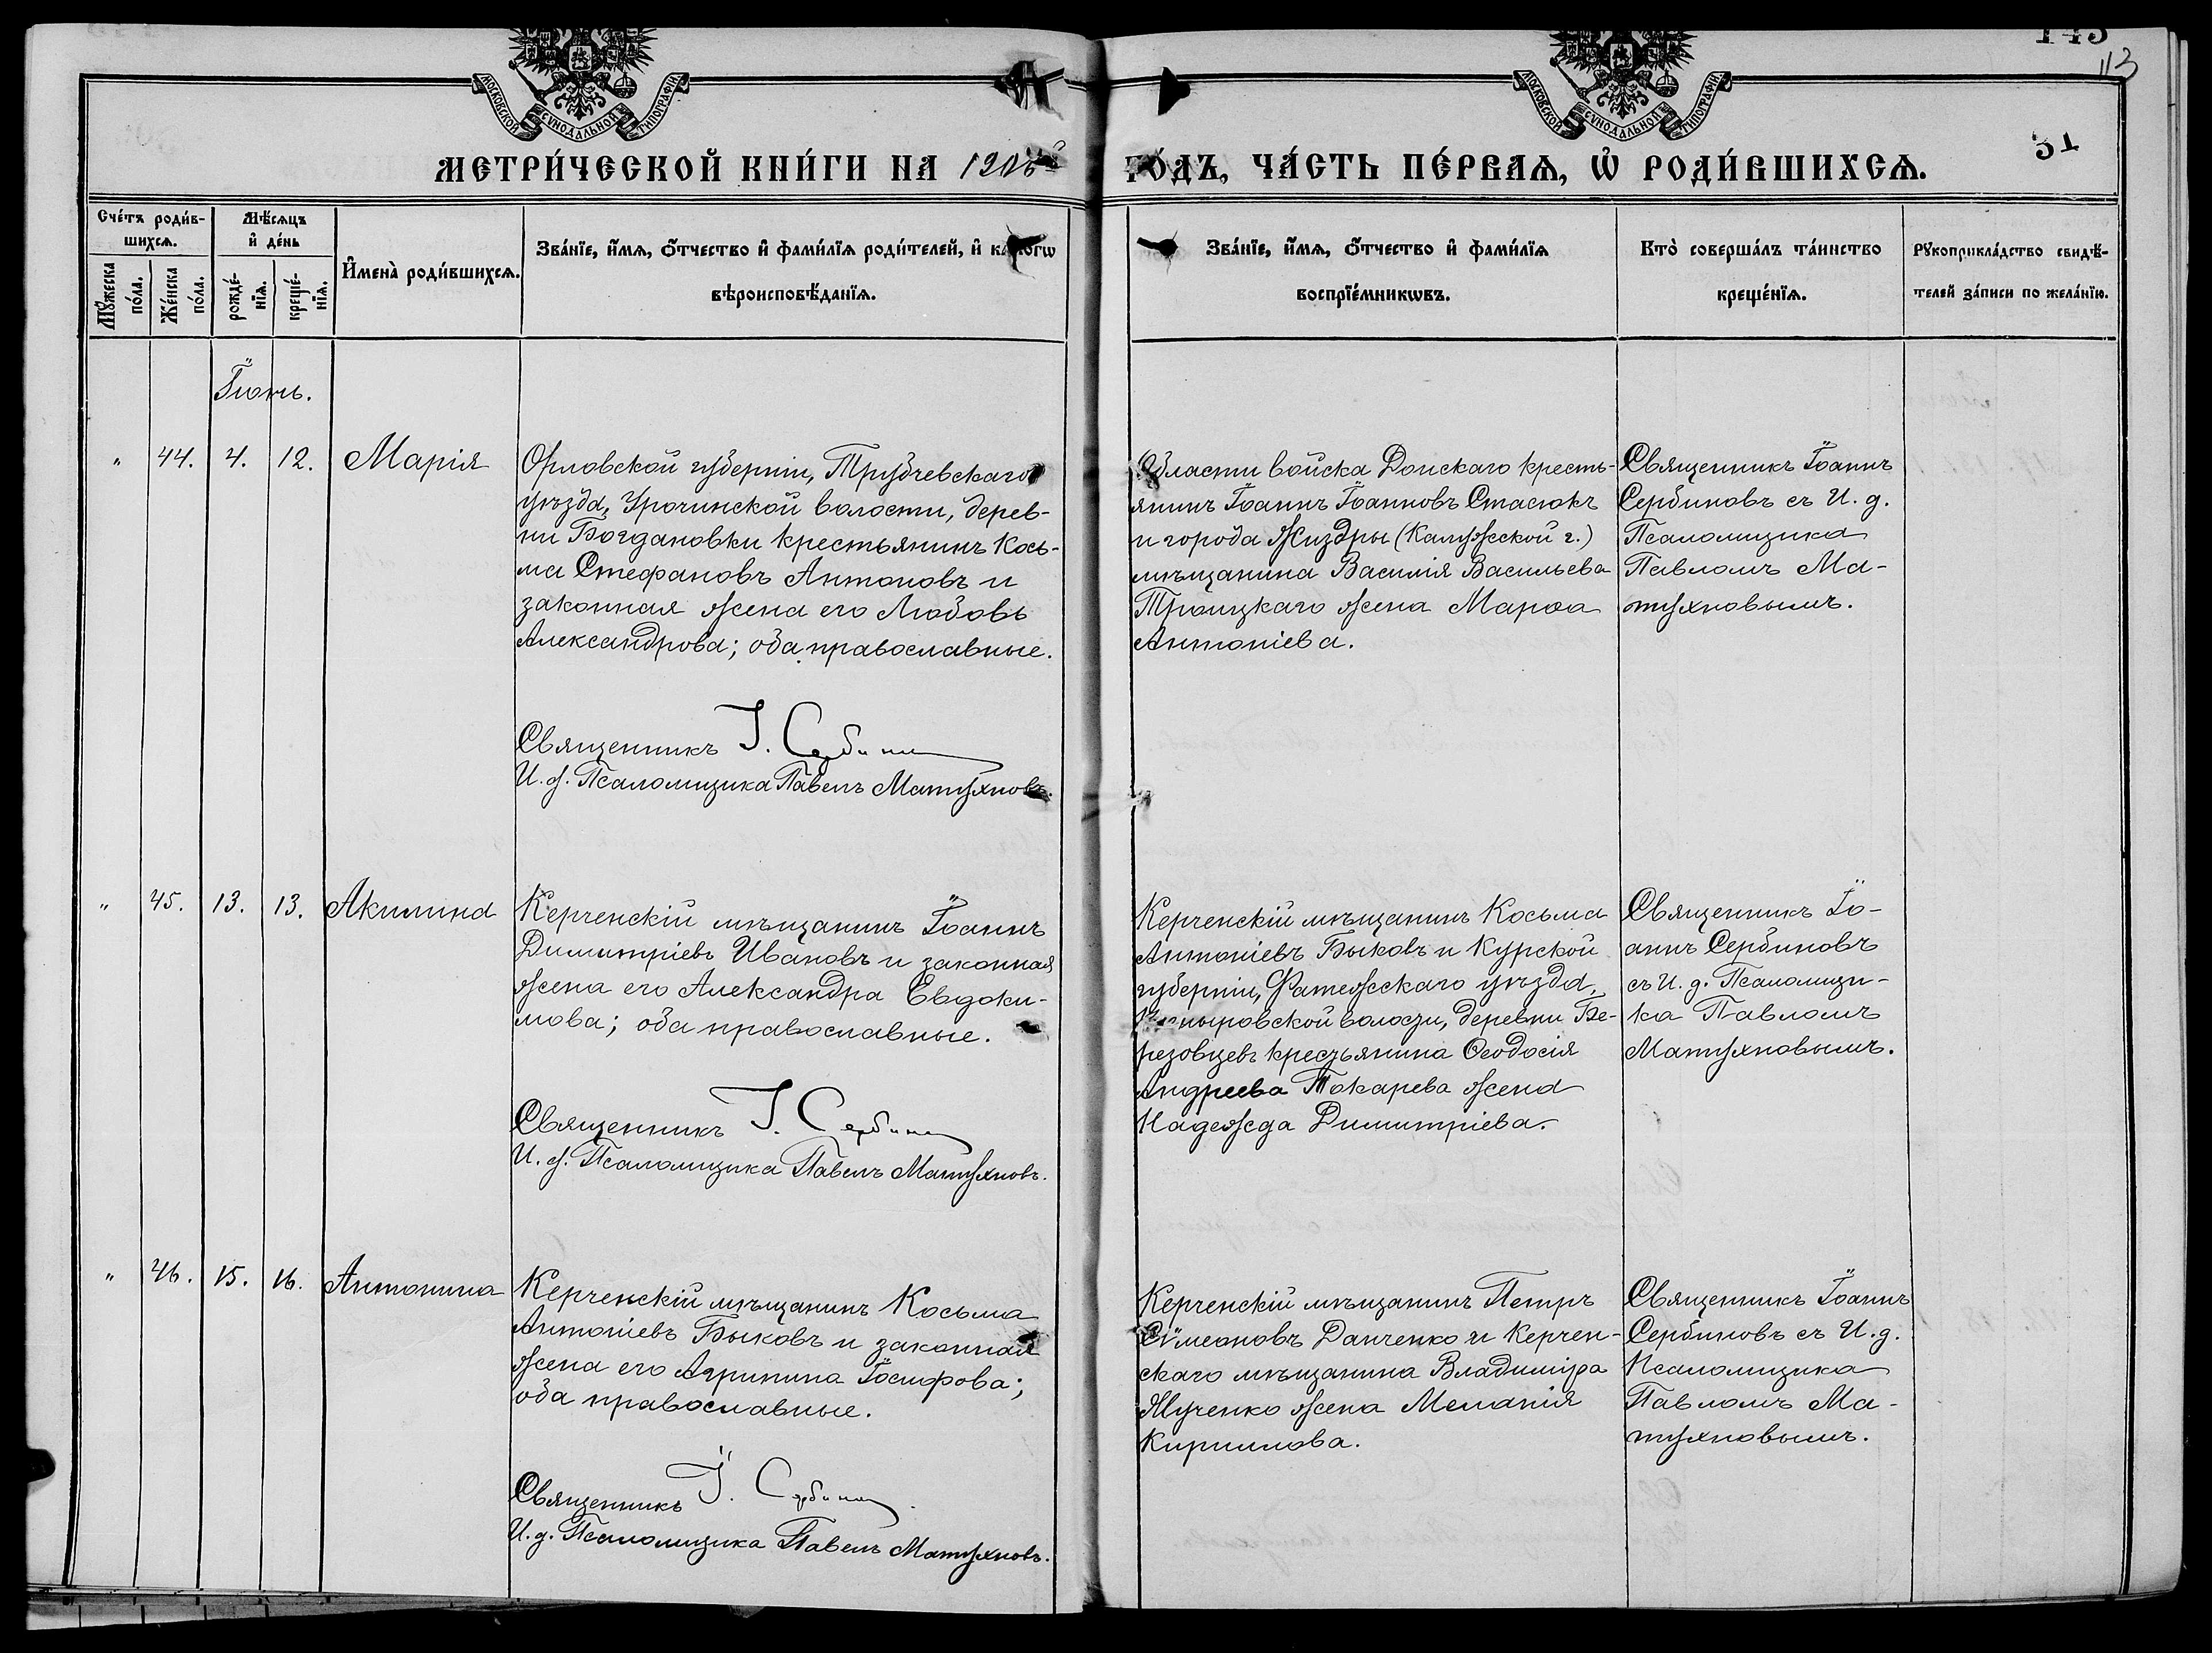 113
31
МОСКОВСКОЙ СѴНОДАЛЬНОЙ ТИПОГРАФІИ.
МОСКОВСКОЙ СѴНОДАЛЬНОЙ ТИПОГРАФІИ.
МЕТРИ́ЧЕСКОЙ КНИ́ГИ НА
ГО́ДЪ, ЧА́СТЬ ПЕ́РВАѦ, Ѽ РОДИ́ВШИХСѦ.
Сче́тъ роди́в-
шихсѧ.
Мꙋжеска
по́ла.
Же́нска
по́ла.
Мѣ́сѧцъ
и҆ де́нь
рожде́-
нїѧ.
креще́-
нїѧ.
И҆мена̀ роди́вшихсѧ.
Зва́нїе, и҆́мѧ, ѻ҆́тчество и҆ фами́лїѧ роди́телей, и҆ како́гѡ
вѣроисповѣ́данїѧ.
Зва́нїе, и҆́мѧ, ѻ҆́тчество и҆ фами́лїѧ
воспрїе́мникѡвъ.
Кто̀ соверша́лъ та́инство
креще́нїѧ.
Рꙋкоприкла́дство свидѣ́-
телей за́писи по жела́нїю.
Іюнь.
" 44. 4. 12. Марія
Орловской губерніи, Трубчевскаго
уѣзда, Урочинской волости, дерев-
ни Богдановки крестьянинъ Кось-
ма Стефановъ Антоновъ и
законная жена его Любовь
Александрова; оба православные.
Священникъ І. Сербинов
И. д. Псаломщика Павелъ Матухновъ.
Области войска Донскаго кресть-
янинъ Іоаннъ Іоанновъ Стасюкъ
и города Жиздры (Калужской г.)
мѣщанина Василія Васильева
Троицкаго жена Марѳа
Антоніева.
Священникъ Іоаннъ
Сербиновъ съ И. д.
Псаломщика
Павломъ Ма-
тухновымъ.
" 45. 13. 13. Акилина
Керченскій мѣщанинъ Іоаннъ
Димитріевъ Ивановъ и законная
жена его Александра Евдоки-
мова; оба православные.
Священникъ І. Сербинов
И. д. Псаломщика Павелъ Матухновъ.
Керченскій мѣщанинъ Косьма
Антоніевъ Быковъ и Курской
губерніи, Фатежскаго уѣзда,
волости, деревни Бе-
резовцевъ крестьянина Ѳеодосія
Андреева Токарева жена
Надежда Димитріева.
Священникъ Іо-
аннъ Сербиновъ
съ И. д. Псаломщи-
ка Павломъ
Матухновымъ.
" 46. 15. 16. Антонина
Керченскій мѣщанинъ Косьма
Антоніевъ Быковъ и законная
жена его Агрипина Іосифова;
оба православные.
Священникъ І. Сербинов
И. д. Псаломщика Павелъ Матухновъ.
Керченскій мѣщанинъ Петръ
Сѵмеоновъ Данченко и Керчен-
скаго мѣщанина Владиміра
Ячученко жена Меланія
Кириллова.
Священникъ Іоаннъ
Сербиновъ съ И. д.
Псаломщика
Павломъ Ма-
тухновымъ.